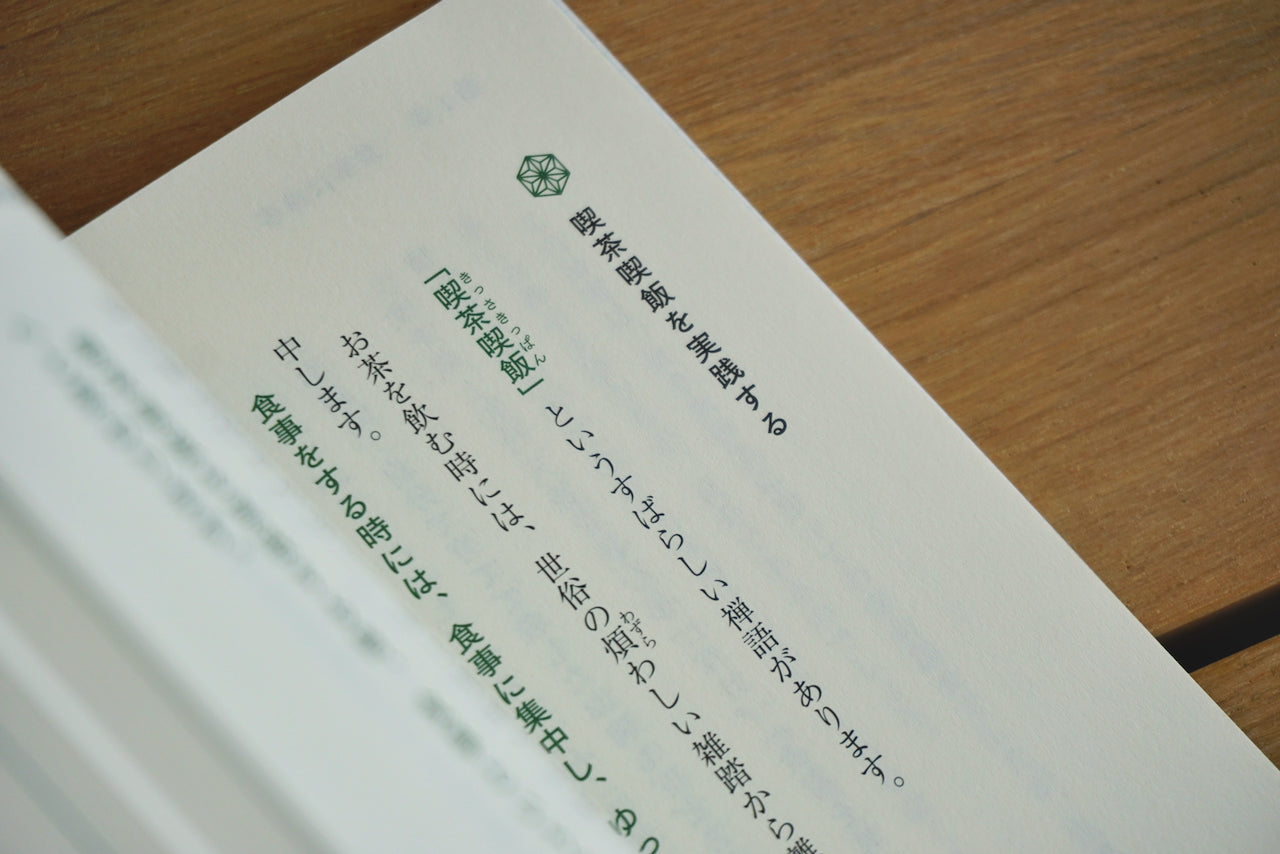 喫茶喫飯を実践する
「喫茶喫飯」というすばらしい禅語があります。
きっさきっぱん
お茶を飲む時には、世俗の煩わしい雑踏から離
わずら
中します。
食事をする時には、食事に集中し、ゆっ